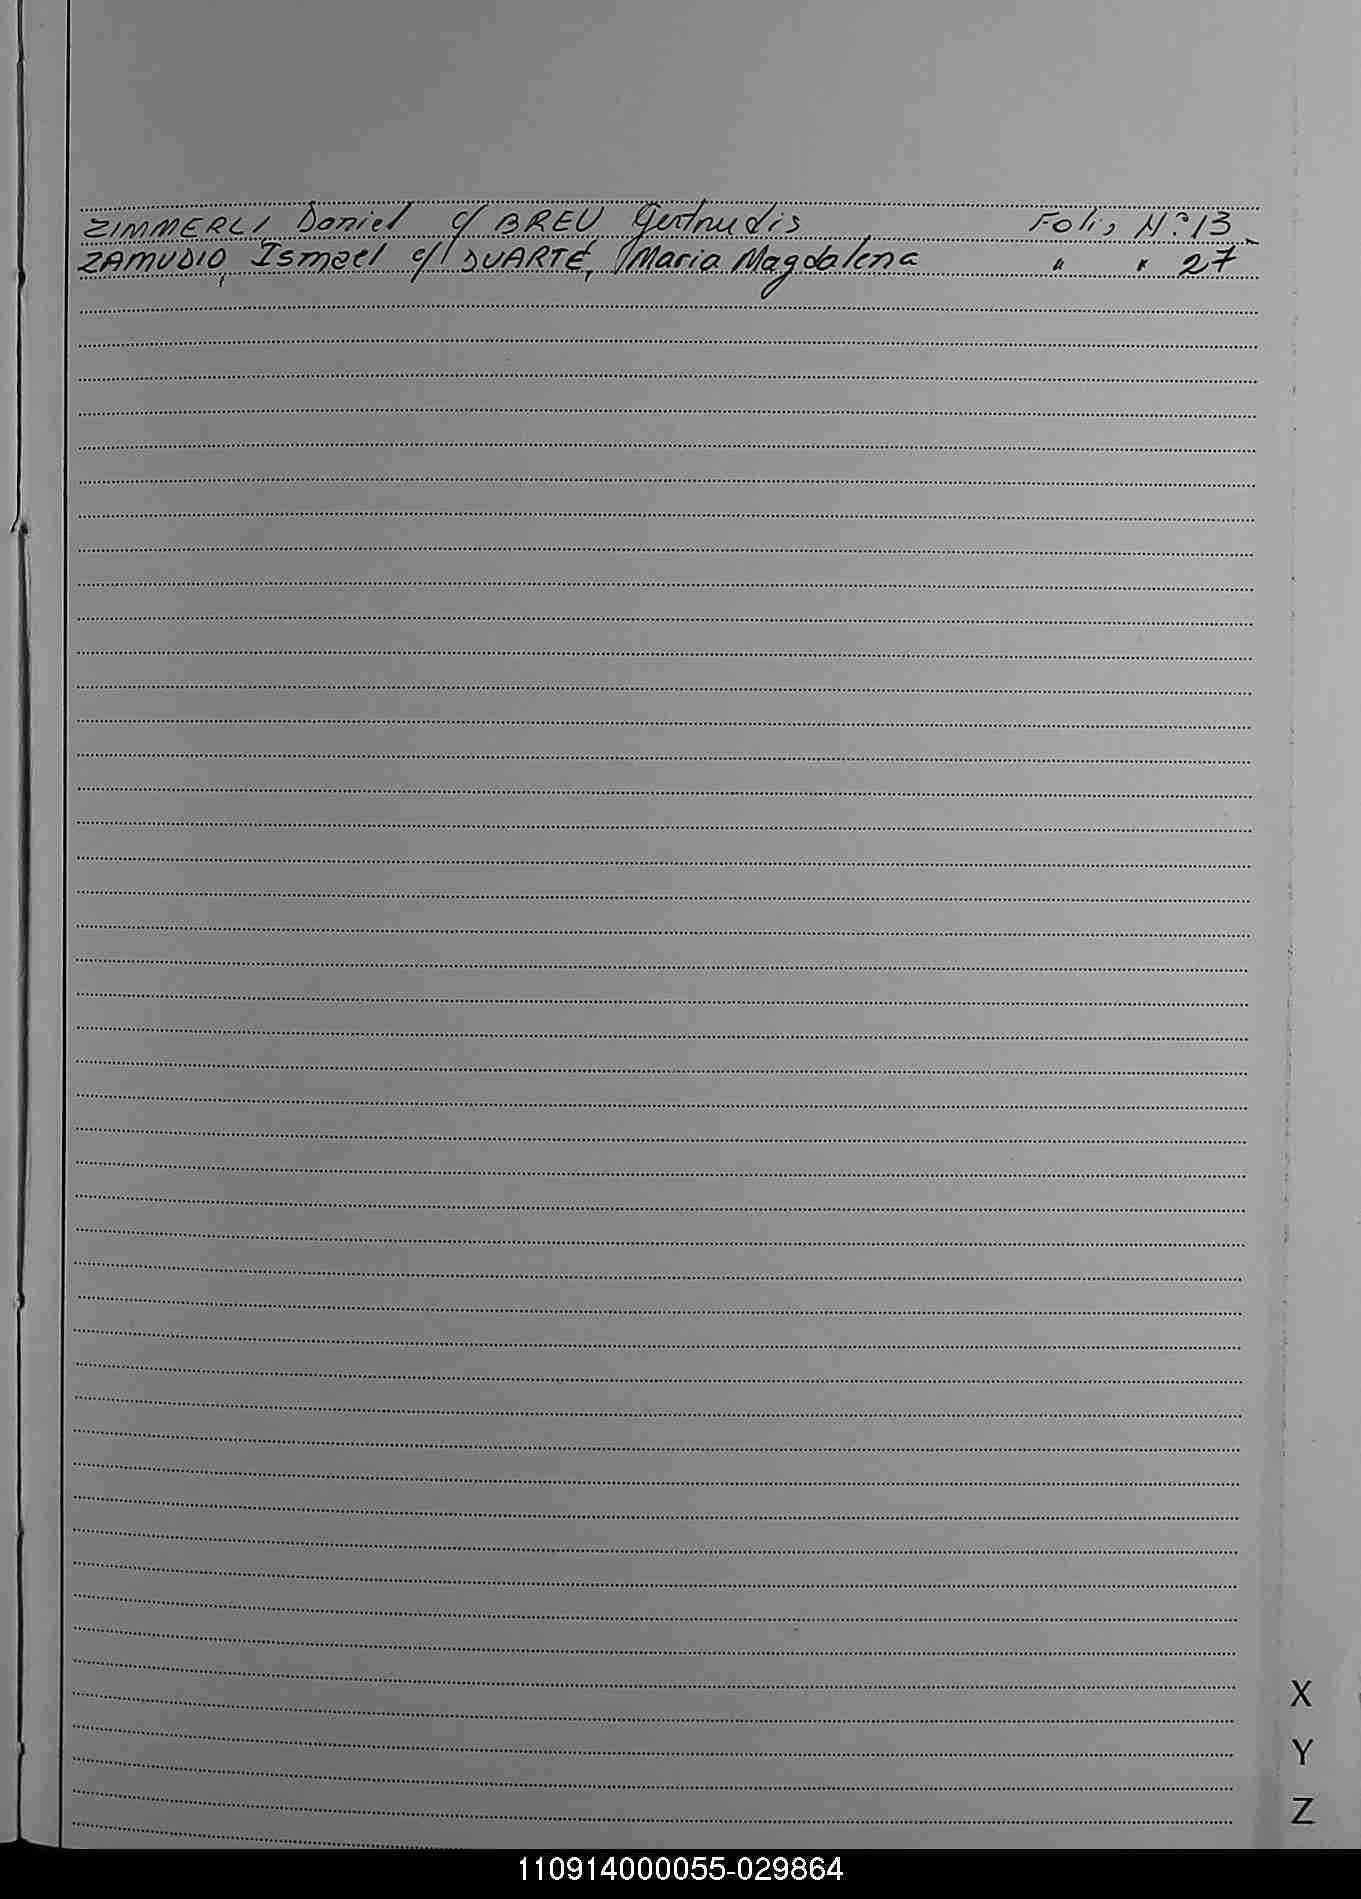 ZIMMERLI Daniel c/ BREU Gertrudis Folio N.º 13
ZAMUDIO, Ismael c/ DUARTE, Maria Magdalena " " 27
X
Y
Z
110914000055-029864